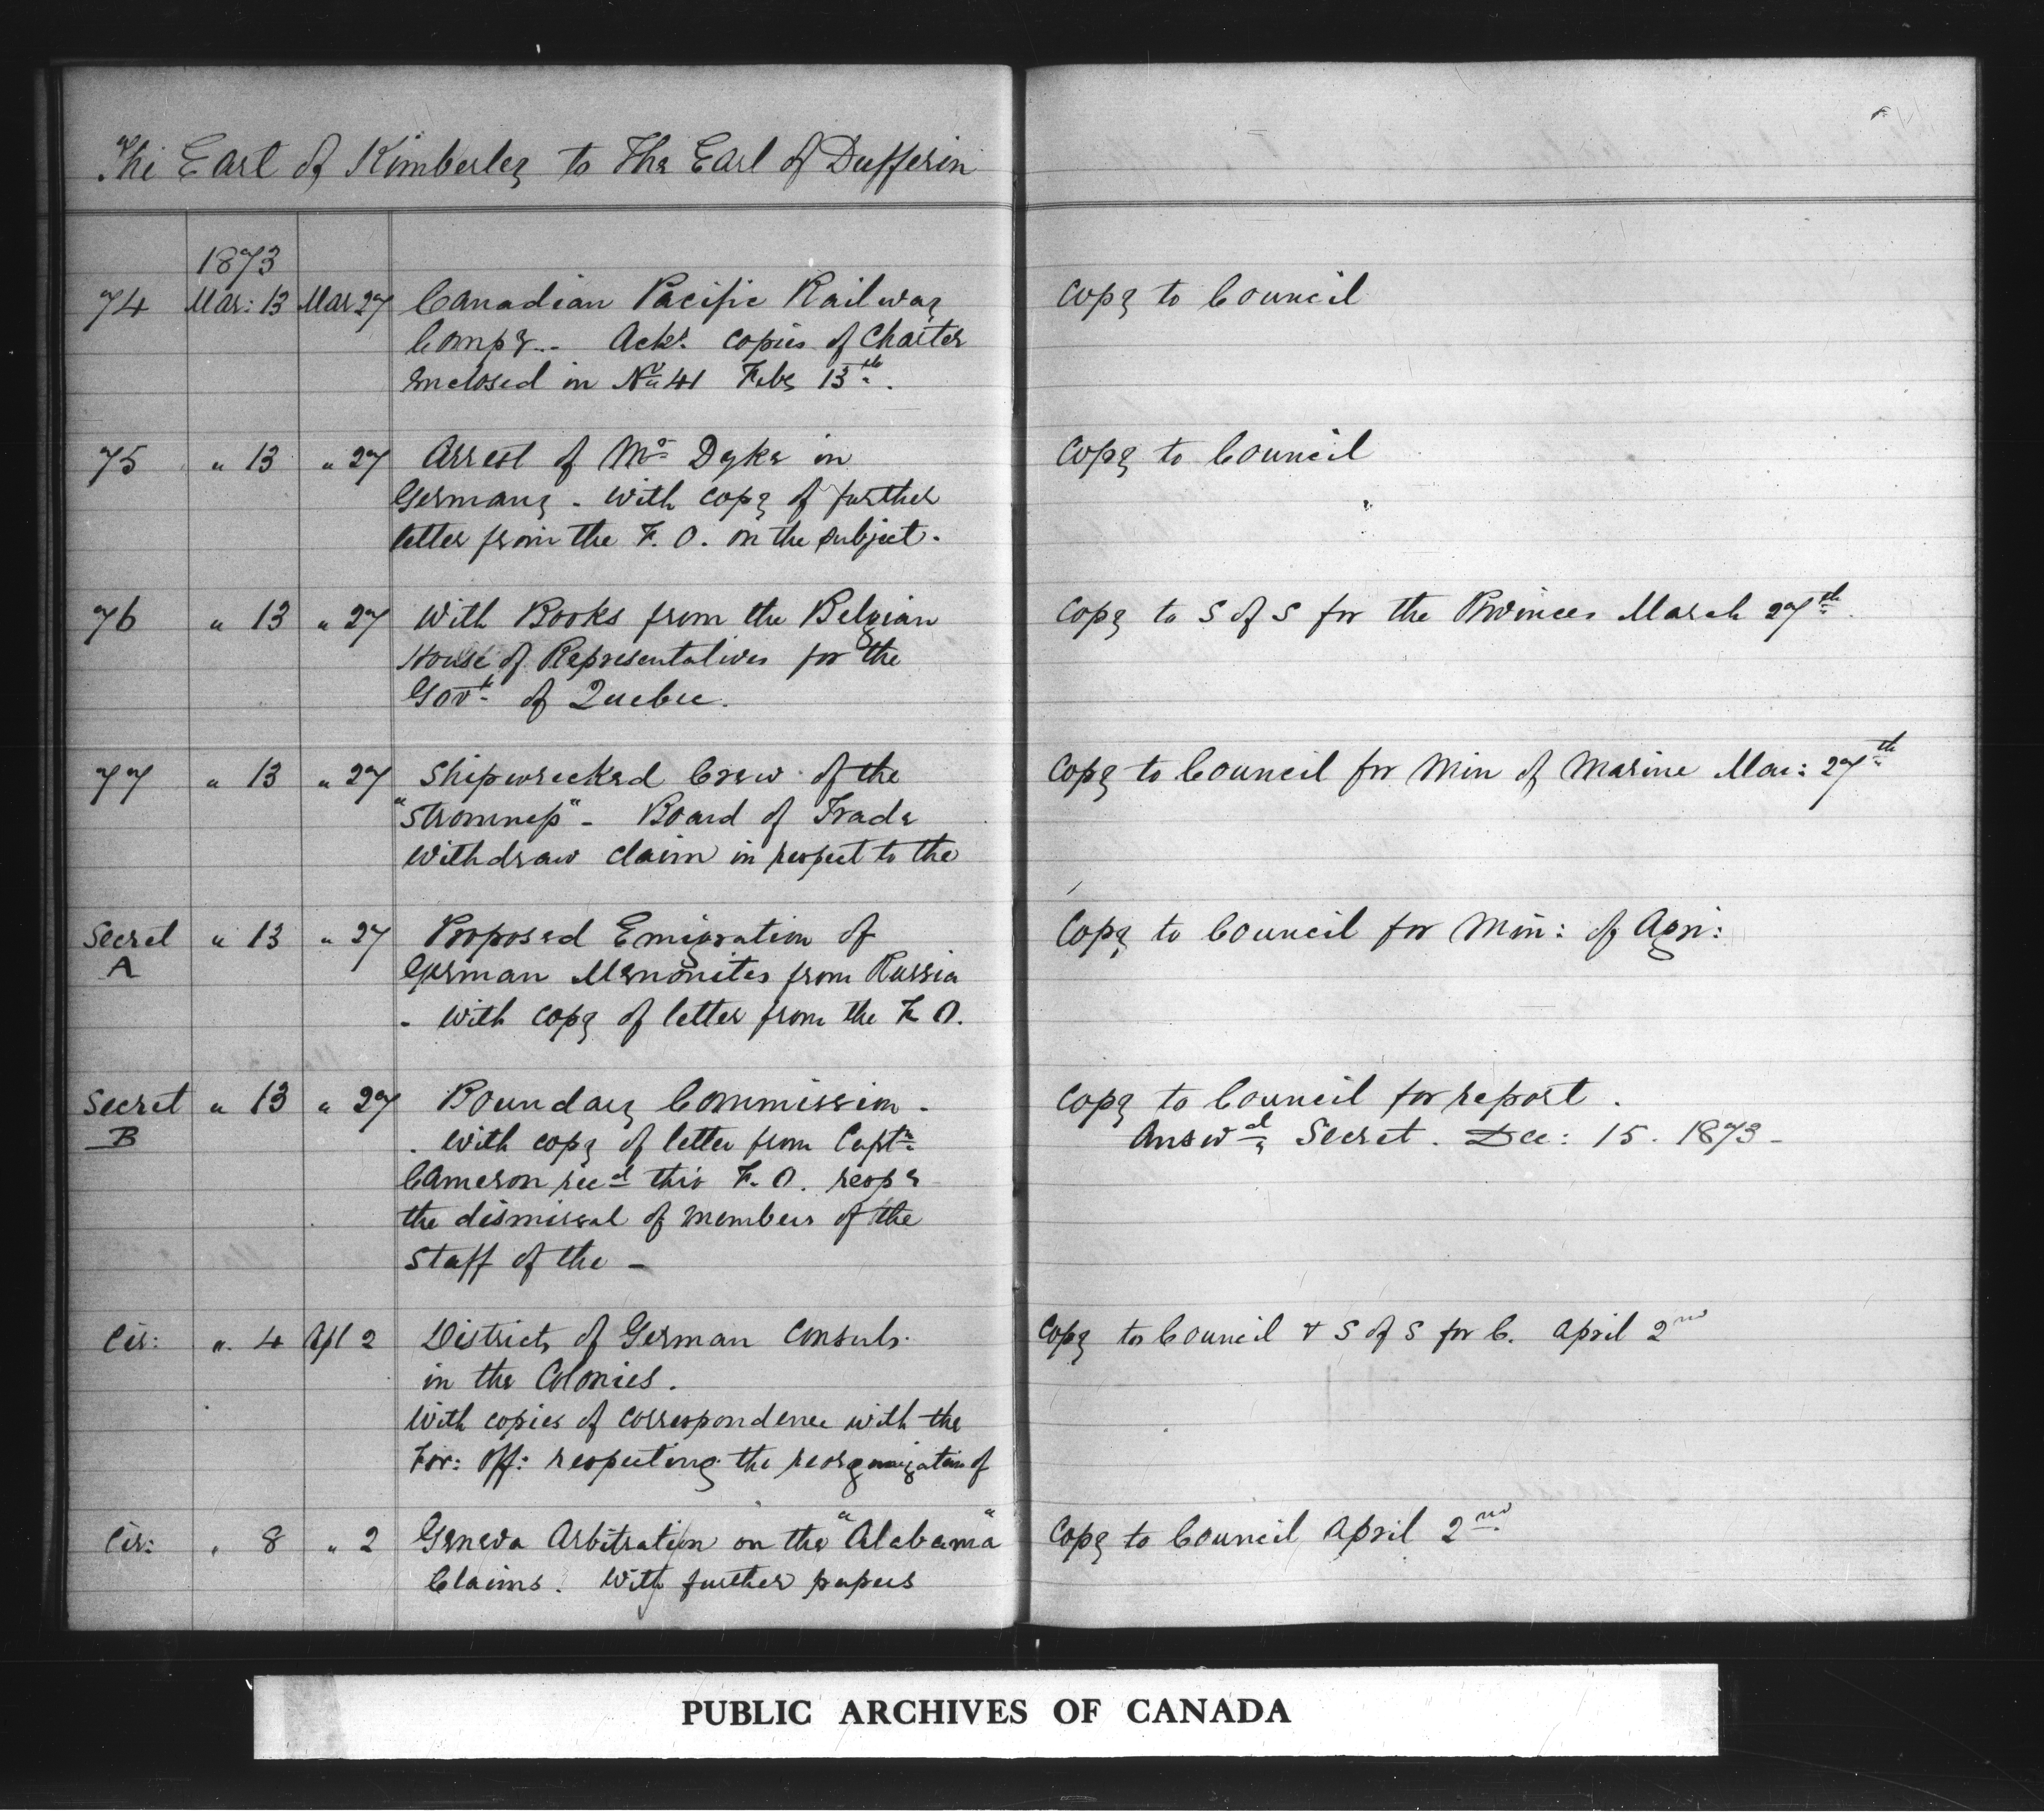 The Earl of Kimberley to The Earl of Dufferin
1873
74 Mar: 13 Mar 27 Canadian Pacific Railway Copy to Council
Compy.. Ackg. copies of Charter
enclosed in No 41 Feby 13th.
75 " 13 " 27 Arrest of Mr Dyke in Copy to Council
Germany - With copy of further
letter from the F. O. on the subject.
76 " 13 " 27 With Books from the Belgian Copy to S of S for the Provinces March 27th.
House of Representatives for the
Govt. of Quebec.
77 " 13 " 27 Shipwrecked Crew of the Copy to Council for Min of Marine Mar: 27th
"Stromness" - Board of Trade
withdraw claim in respect to the
Secret " 13 " 27 Proposed Emigration of Copy to Council for Min: of Agri:
A German Menonites from Russia
- With copy of letter from the F. O.
Secret " 13 " 27 Boundary Commission - Copy to Council for report.
B . With copy of letter from Captn Answd Secret. Dec: 15. 1873 -
Cameron recd this F. O. respg
the dismissal of members of the
staff of the -
Cir: " 4 Apl 2 Districts of German Consuls. Copy to Council & S of S for C. April 2nd
in the Colonies.
With copies of correspondence with the
For: Off: respecting the reorganization of
Cir: " 8 " 2 Geneva Arbitration on the "Alabama" Copy to Council April 2nd
Claims. With further papers
PUBLIC ARCHIVES OF CANADA